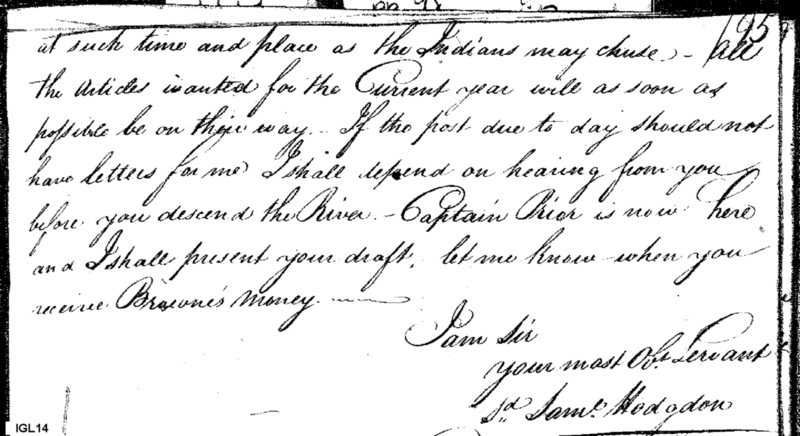 195
at such time and place as the Indians may chuse - All
the articles wanted for the Current year will as soon as
possible be on their way. If the post due to day should not
have letters for me I shall depend on hearing from you
before you descend the River - Captain Prior is now here
and I shall present your draft, let me know when you
receive Browne's Money
I am Sir
your most Obt. Servant
Sd. Saml. Hodgdon
IGL14